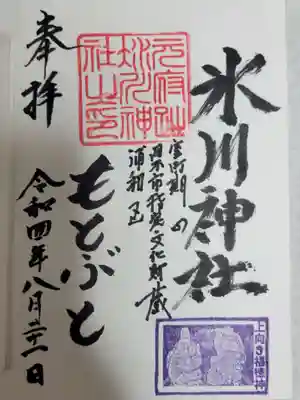 氷川神社
室町期の
市指定文化財蔵
浦和
もとぶと
奉拝
令和四年八月二十一日
元府趾
氷川神
社之印
上向き福徳神